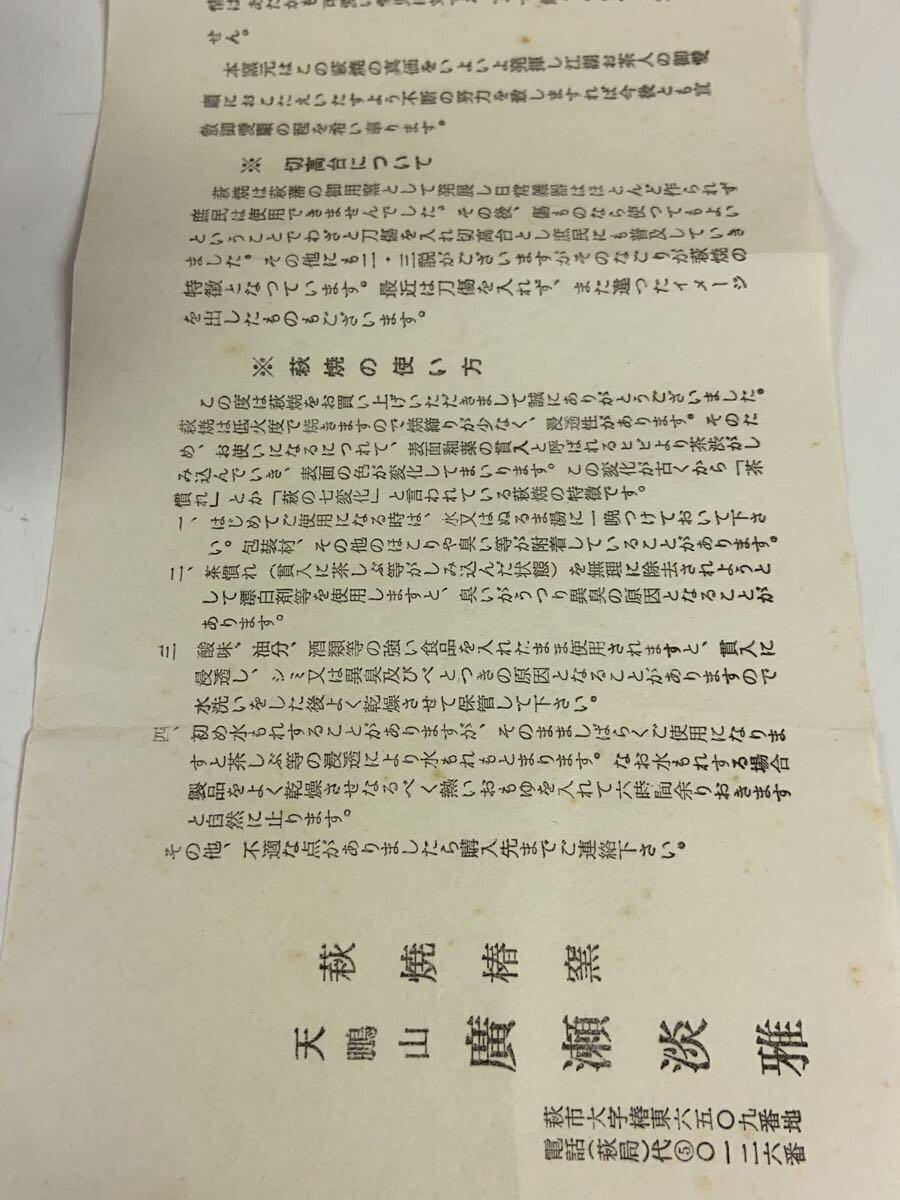 せん。
本窯元はこの萩焼の真価をいよいよ発揮し江湖お茶人の御愛
顧におこたえいたすよう不断の努力を致しますれば今後とも宜
敷御愛顧の程を希い奉ります。
※　切高台について
萩焼は萩藩の御用窯として発展し日常雑器はほとんど作られず
庶民は使用できませんでした。その後、傷ものなら使つてもよい
ということでわざと刀傷を入れ切高台とし庶民にも普及していき
ました。その他にも二・三説がございますがそのなごりが萩焼の
特徴となつています。最近は刀傷を入れず、また違つたイメージ
を出したものもございます。
※ 萩焼の使い方
この度は萩焼をお買い上げいただきまして誠にありがとうございました。
萩焼は低火度で焼きますので焼締りが少なく、浸透性があります。そのた
め、お使いになるにつれて、表面釉薬の貫入と呼ばれるヒビより茶渋がし
み込んでいき、表面の色が変化してまいります。この変化が古くから「茶
慣れ」とか「萩の七変化」と言われている萩焼の特徴です。
一、はじめてご使用になる時は、水又はぬるま湯に一晩つけておいて下さ
い。包装材、その他のほこりや臭い等が附着していることがあります。
二、茶慣れ（貫入に茶しぶ等がしみ込んだ状態）を無理に除去されようと
して漂白剤等を使用しますと、臭いがうつり異臭の原因となることが
あります。
三　酸味、油分、酒類等の強い食品を入れたまま使用されますと、貫入に
浸透し、シミ又は異臭及びべとつきの原因となることがありますので
水洗いをした後よく乾燥させて保管して下さい。
四、初め水もれすることがありますが、そのまましばらくご使用になりま
すと茶しぶ等の浸透により水もれもとまります。なお水もれする場合
製品をよく乾燥させなるべく熱いおもゆを入れて六時間余りおきます
と自然に止ります。
その他、不適な点がありましたら購入先までご連絡下さい。
萩焼椿窯
天鵬山　廣瀬淡雅
萩市大字椿東六五〇九番地
電話(萩局)代⑤〇一二六番